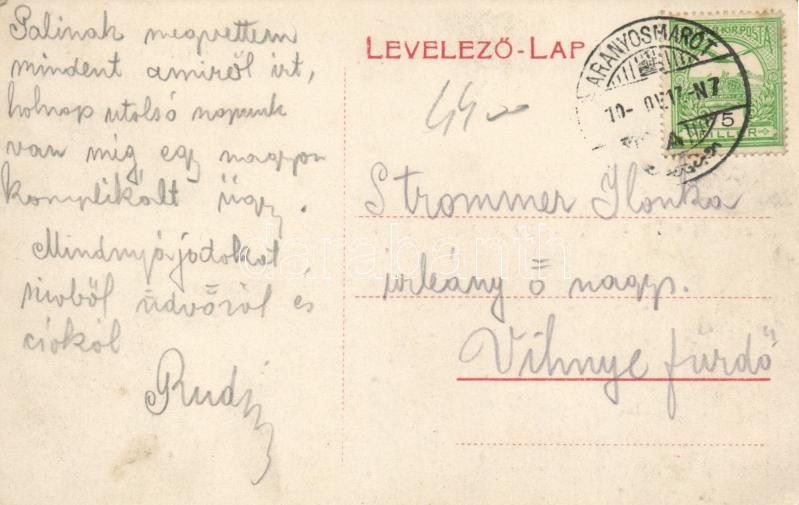 Palinak megvettem
mindent amiről írt,
holnap utolsó napunk
van még egy nagyon
komplikált ügy.
Mindnyájodokat
szivből üdvözöl és
csókol
Rudi
LEVELEZŐ-LAP
4400
ARANYOSMARÓT
A
KIR. POSTA
5
FILLÉR
Strommer Ilonka
úrleány ő nagys.
Vihnye fürdő
darabanth